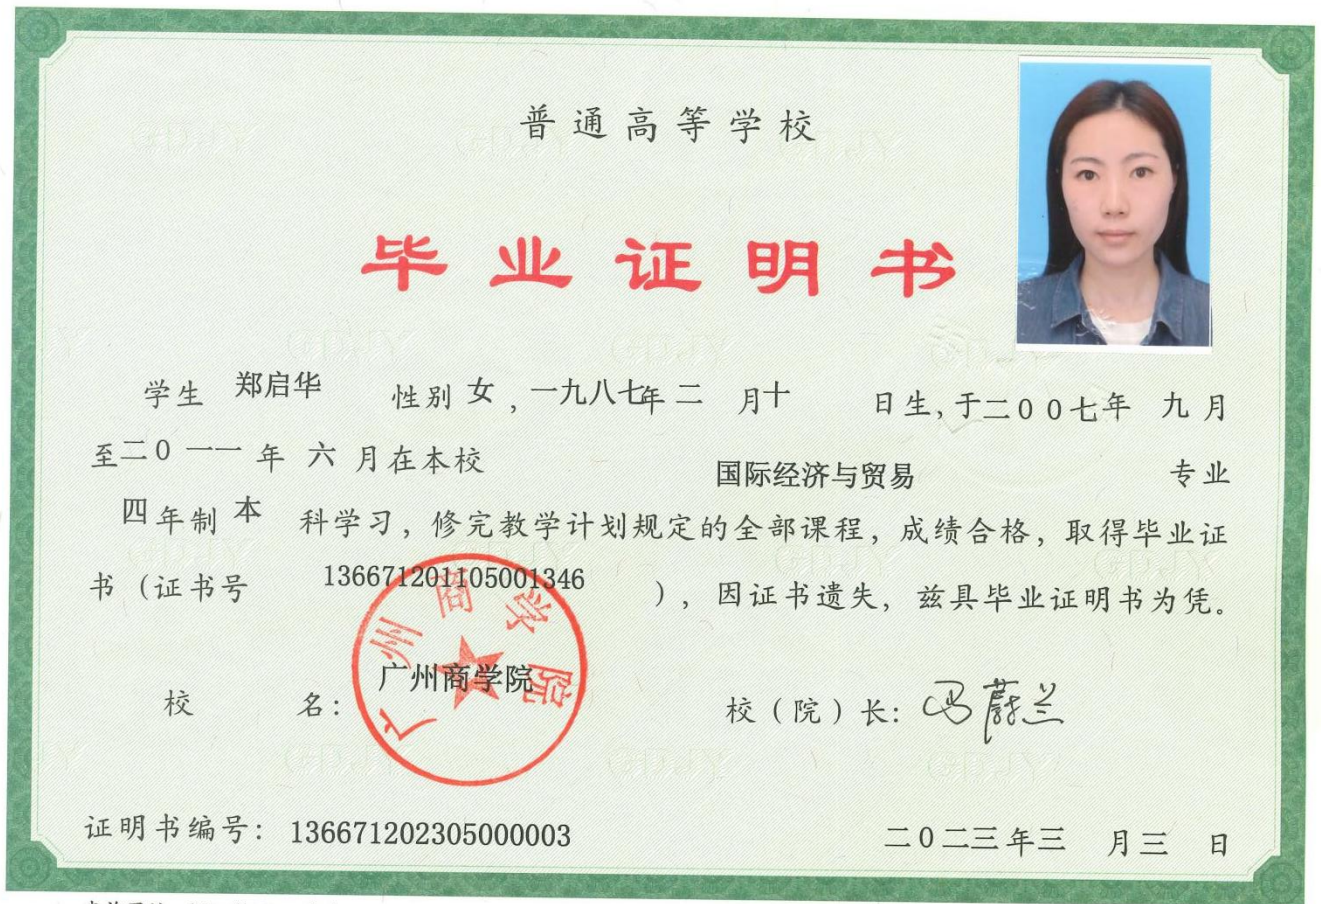 普通高等学校
毕业证明书
学生 郑启华 性别 女 , 一九八七年 二 月十 日生, 于二00七年 九月
至二0一一年 六 月在本校 国际经济与贸易 专业
四年制 本 科学习, 修完教学计划规定的全部课程, 成绩合格, 取得毕业证
书 (证书号 136671201105001346 ), 因证书遗失, 兹具毕业证明书为凭。
广州商学院
校 名: 广州商学院 校(院)长: 冯蔚兰
证明书编号: 136671202305000003 二0二三年三 月三 日